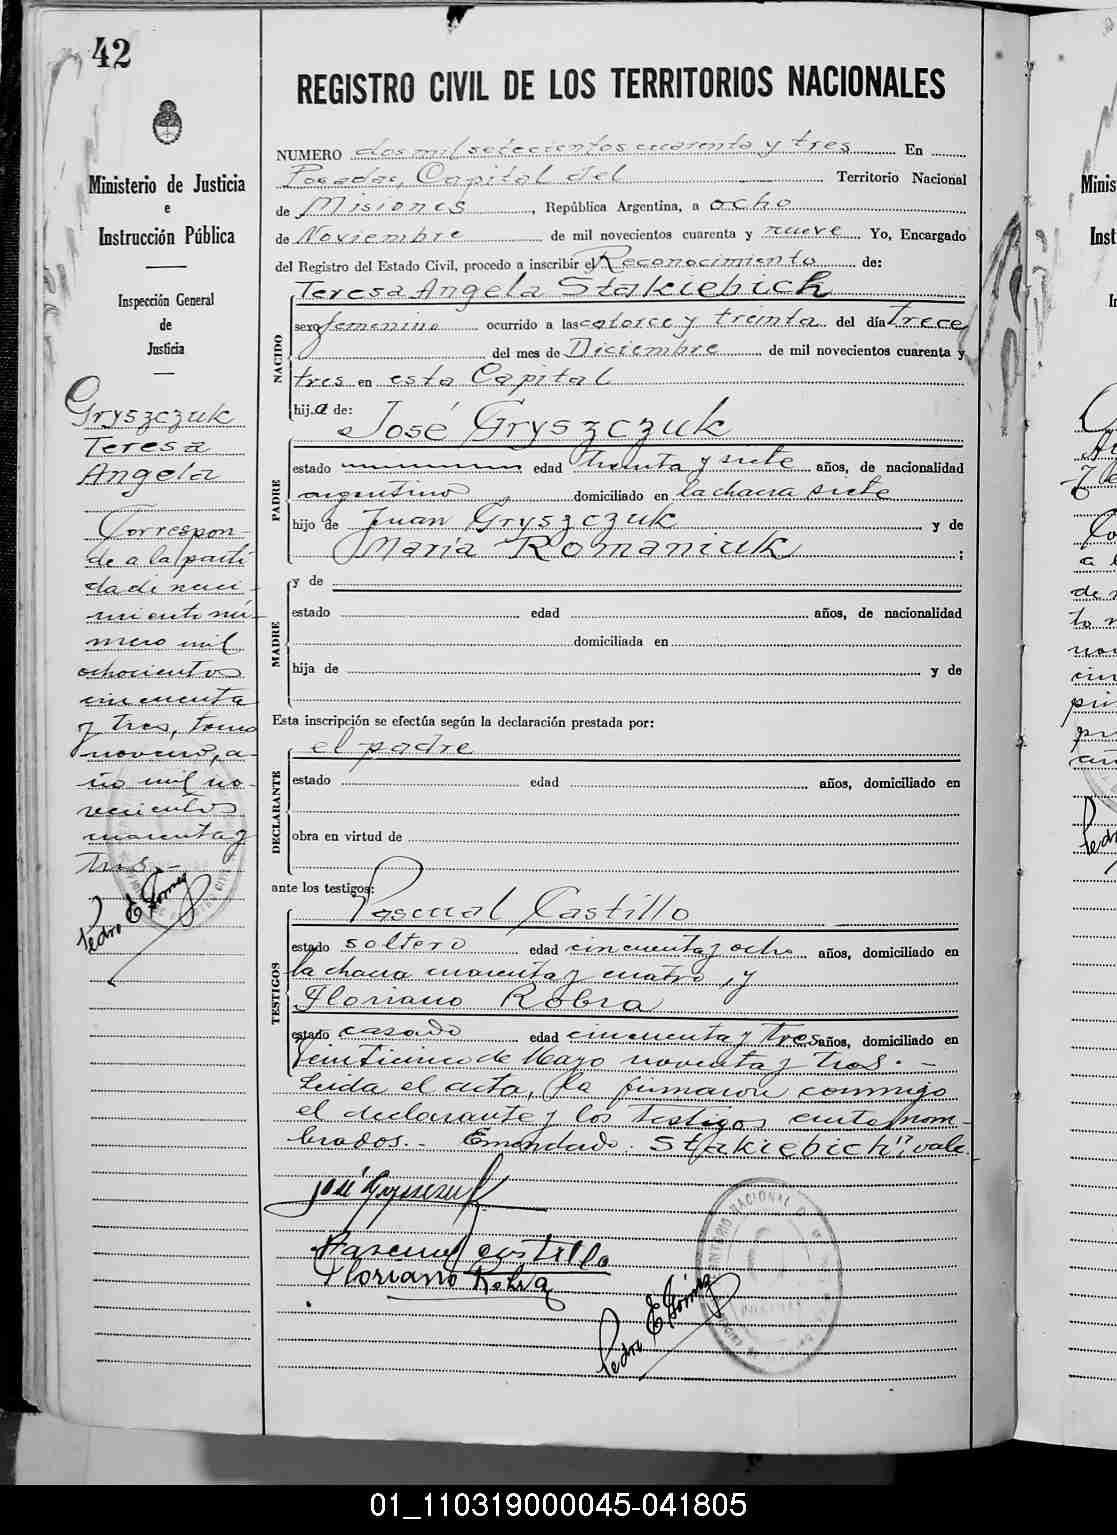 42
Ministerio de Justicia
e
Instrucción Pública
Inspección General
de
Justicia
Gryszczuk
Teresa
Angela
Correspon-
de a la parti-
da de naci-
miento nú-
mero mil
ochocientos
cincuenta
y tres, tomo
noveno, a-
ño mil no-
vecientos
cuarenta y
tres.-
Pedro E Gómez
REGISTRO CIVIL DE LOS TERRITORIOS NACIONALES
NUMERO dos mil setecientos cuarenta y tres En
Posadas, Capital del Territorio Nacional
de Misiones, República Argentina, a ocho
de Noviembre de mil novecientos cuarenta y nueve Yo, Encargado
del Registro del Estado Civil, procedo a inscribir el Reconocimiento de:
NACIDO
Teresa Angela Stakiebich
sexo femenino ocurrido a las catorce y treinta del día trece
del mes de Diciembre de mil novecientos cuarenta y
tres en esta Capital
hija de:
PADRE
José Gryszczuk
estado edad treinta y siete años, de nacionalidad
argentino, domiciliado en la chacra siete
hijo de Juan Gryszczuk y de
María Romaniuk ;
MADRE
y de
estado edad años, de nacionalidad
domiciliada en
hija de y de
Esta inscripción se efectúa según la declaración prestada por:
DECLARANTE
el padre
estado edad años, domiciliado en
obra en virtud de
ante los testigos:
TESTIGOS
Pascual Castillo
estado soltero edad cincuenta y ocho años, domiciliado en
la chacra cuarenta y cuatro, y
Floriano Robra
estado casado edad cincuenta y tres años, domiciliado en
Veinticinco de Mayo noventa y tres.-
Leida el acta, la firmaron conmigo
el declarante y los testigos antes nom-
brados.- Emendado: Stakiebich": vale.
José Gryszczuk
Pascual Castillo
Floriano Robra
Pedro E Gómez
01_110319000045-041805